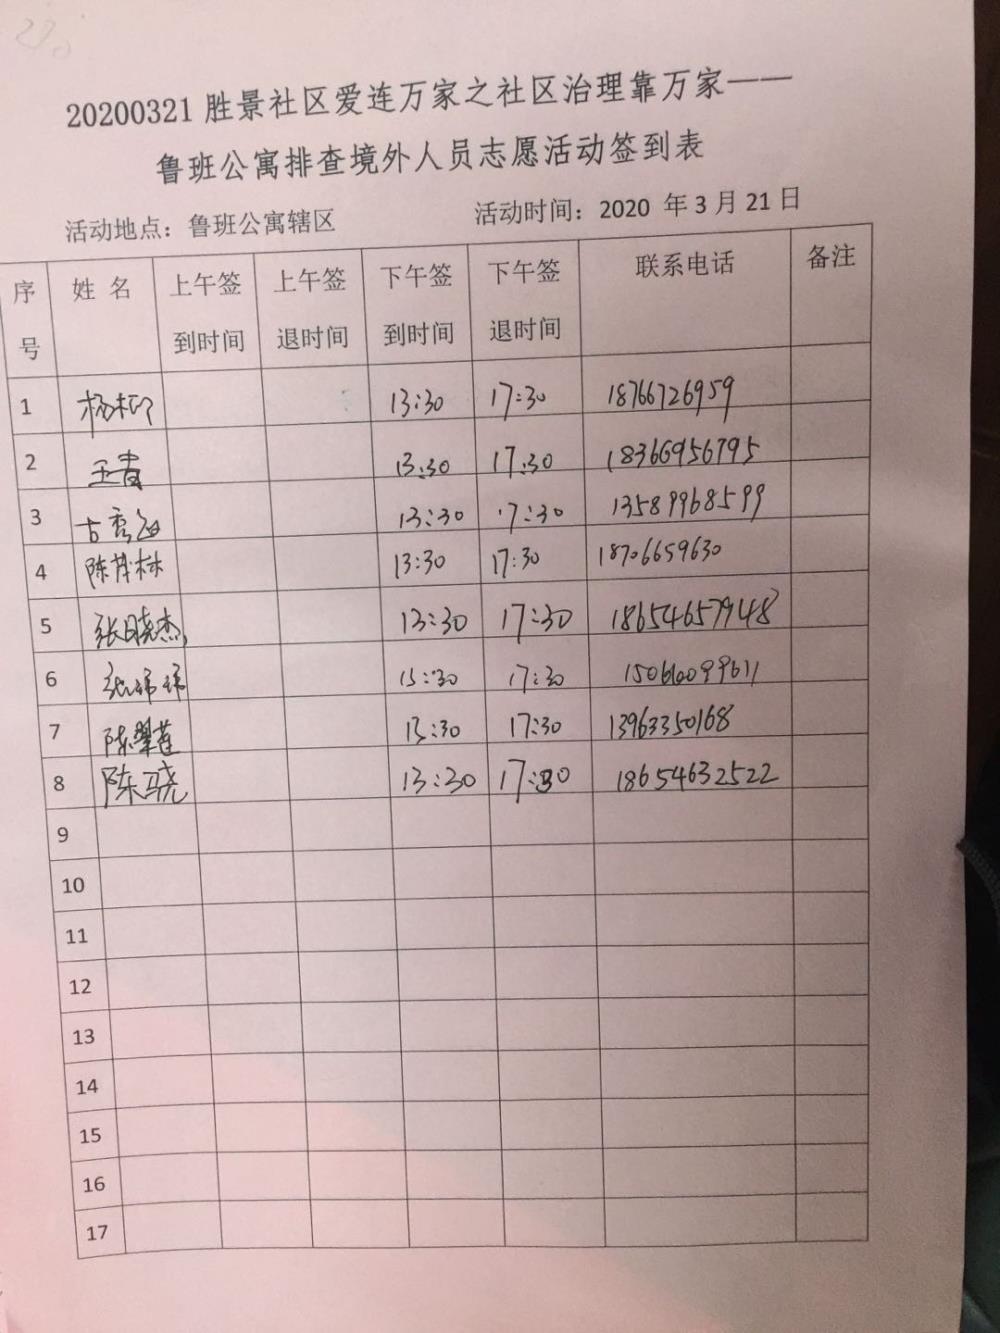 20200321 胜景社区爱连万家之社区治理靠万家——
鲁班公寓排查境外人员志愿活动签到表
活动地点：鲁班公寓辖区 活动时间：2020 年 3 月 21 日
序号 姓名 上午签到时间 上午签退时间 下午签到时间 下午签退时间 联系电话 备注
1 13:30 17:30 18766726959
2 王青 13:30 17:30 18366956795
3 13:30 17:30 13589968599
4 13:30 17:30 18706659630
5 张晓杰 13:30 17:30 18654657948
6 张娣娣 13:30 17:30 15066099611
7 陈翠莲 13:30 17:30 13963350168
8 陈骁 13:30 17:30 18654632522
9
10
11
12
13
14
15
16
17